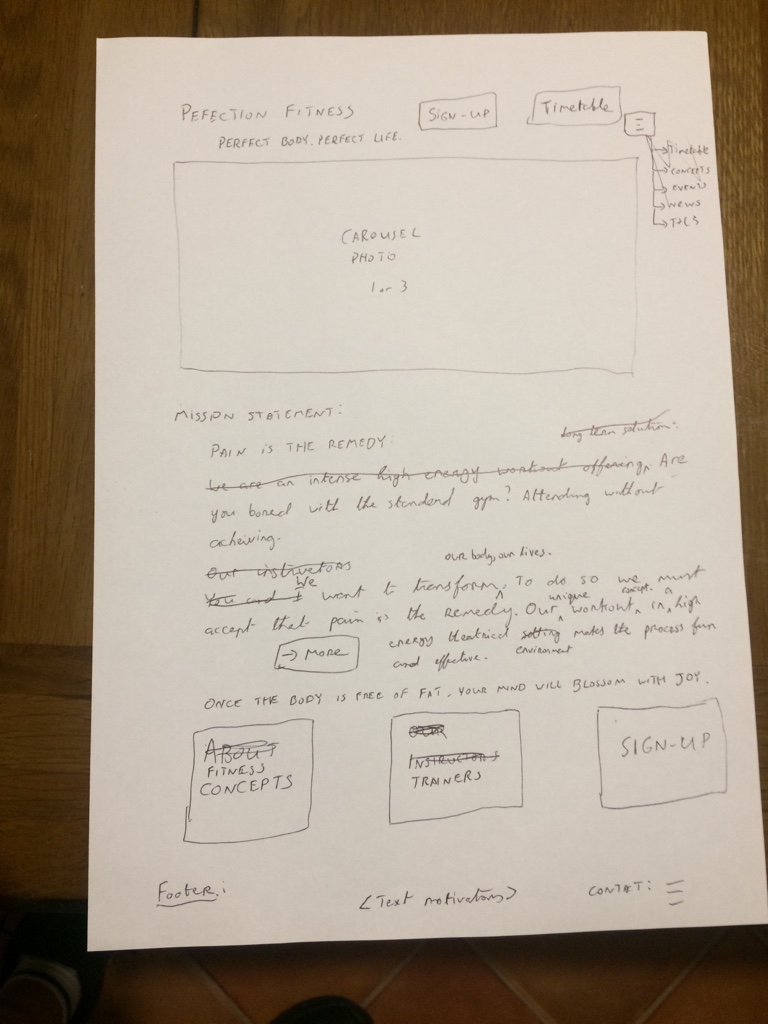 PEFECTION FITNESS
SIGN-UP
Timetable
PERFECT BODY. PERFECT LIFE.
Timetable
CONCEPTS
EVENTS
NEWS
CAROUSEL
PHOTO
1 or 3
MISSION STATEMENT:
long term solution:
PAIN IS THE REMEDY:
We are an intense high energy workout offering. Are
you bored with the standard gym? Attending without
acheiving.
Our instructors
our body, our lives.
You and I We want to transform. To do so we must
accept that pain is the remedy. Our unique workout concept in a high
energy theatrical setting environment makes the process fun
and effective.
→ MORE
ONCE THE BODY IS FREE OF FAT, YOUR MIND WILL BLOSSOM WITH JOY.
ABOUT
FITNESS
CONCEPTS
OUR
INSTRUCTORS
TRAINERS
SIGN-UP
Footer:
<Text motivations>
CONTAT: